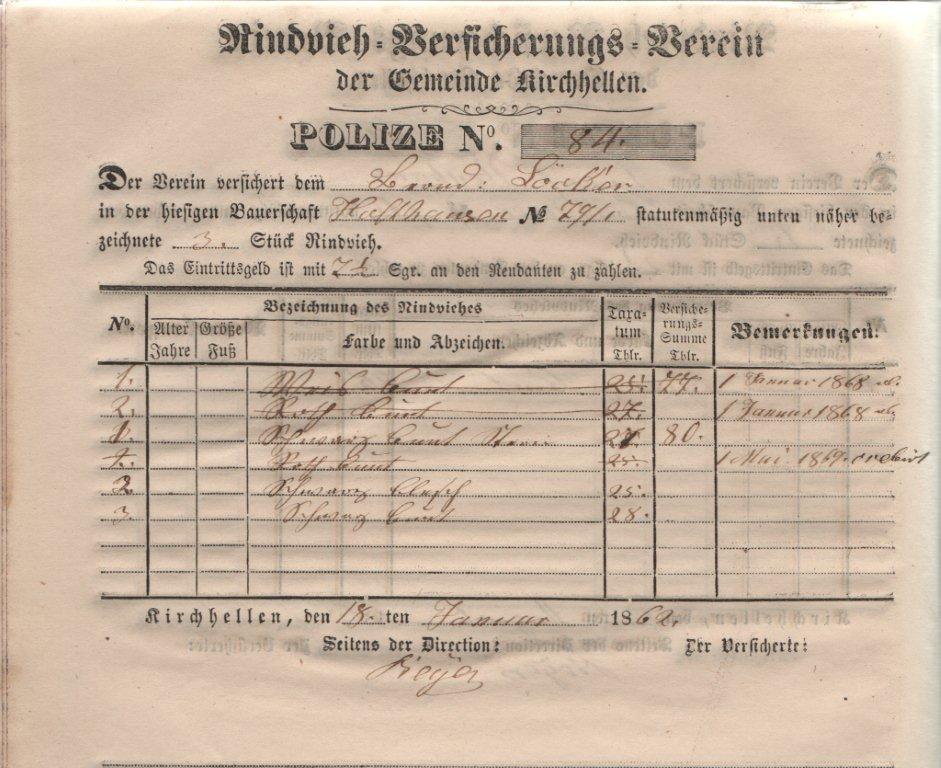 Rindvieh-Versicherungs-Verein
der Gemeinde Kirchhellen.
POLIZE No. 84.
Der Verein versichert dem Bernd:
in der hiesigen Bauerschaft № 79/1 statutenmäßig unten näher be-
zeichnete 3. Stück Rindvieh.
Das Eintrittsgeld ist mit 7½ Sgr. an den Rendanten zu zahlen.
No. Bezeichnung des Rindviehes Taxa-tum Thlr. Versiche-rungs-Summe Thlr. Bemerkungen.
Alter Jahre Größe Fuß Farbe und Abzeichen.
1. Weis bunt 25. 77. 1 Januar 1868
2. Roth bunt 27. 1 Januar 1868
1. Schwarz bunt 27 80.
Roth bunt 25. 1 Mai 1869.
2. Schwarz 25.
3. Schwarz bunt 28.
Kirchhellen, den 18.ten Januar 1862.
Seitens der Direction: Der Versicherte: